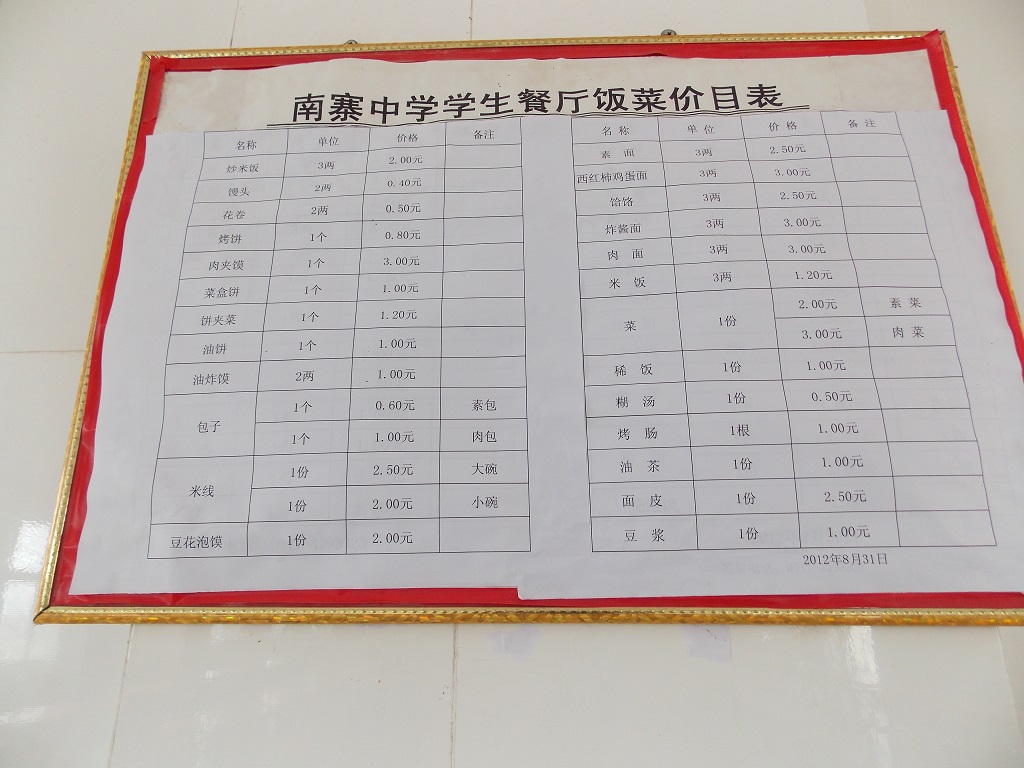 南寨中学学生餐厅饭菜价目表
名称 单位 价格 备注
炒米饭 3两 2.00元
馒头 2两 0.40元
花卷 2两 0.50元
烤饼 1个 0.80元
肉夹馍 1个 3.00元
菜盒饼 1个 1.00元
饼夹菜 1个 1.20元
油饼 1个 1.00元
油炸馍 2两 1.00元
包子 1个 0.60元 素包
1个 1.00元 肉包
米线 1份 2.50元 大碗
1份 2.00元 小碗
豆花泡馍 1份 2.00元
名称 单位 价格 备注
素面 3两 2.50元
西红柿鸡蛋面 3两 3.00元
饸饹 3两 2.50元
炸酱面 3两 3.00元
肉面 3两 3.00元
米饭 3两 1.20元
菜 1份 2.00元 素菜
3.00元 肉菜
稀饭 1份 1.00元
糊汤 1份 0.50元
烤肠 1根 1.00元
油茶 1份 1.00元
面皮 1份 2.50元
豆浆 1份 1.00元
2012年8月31日